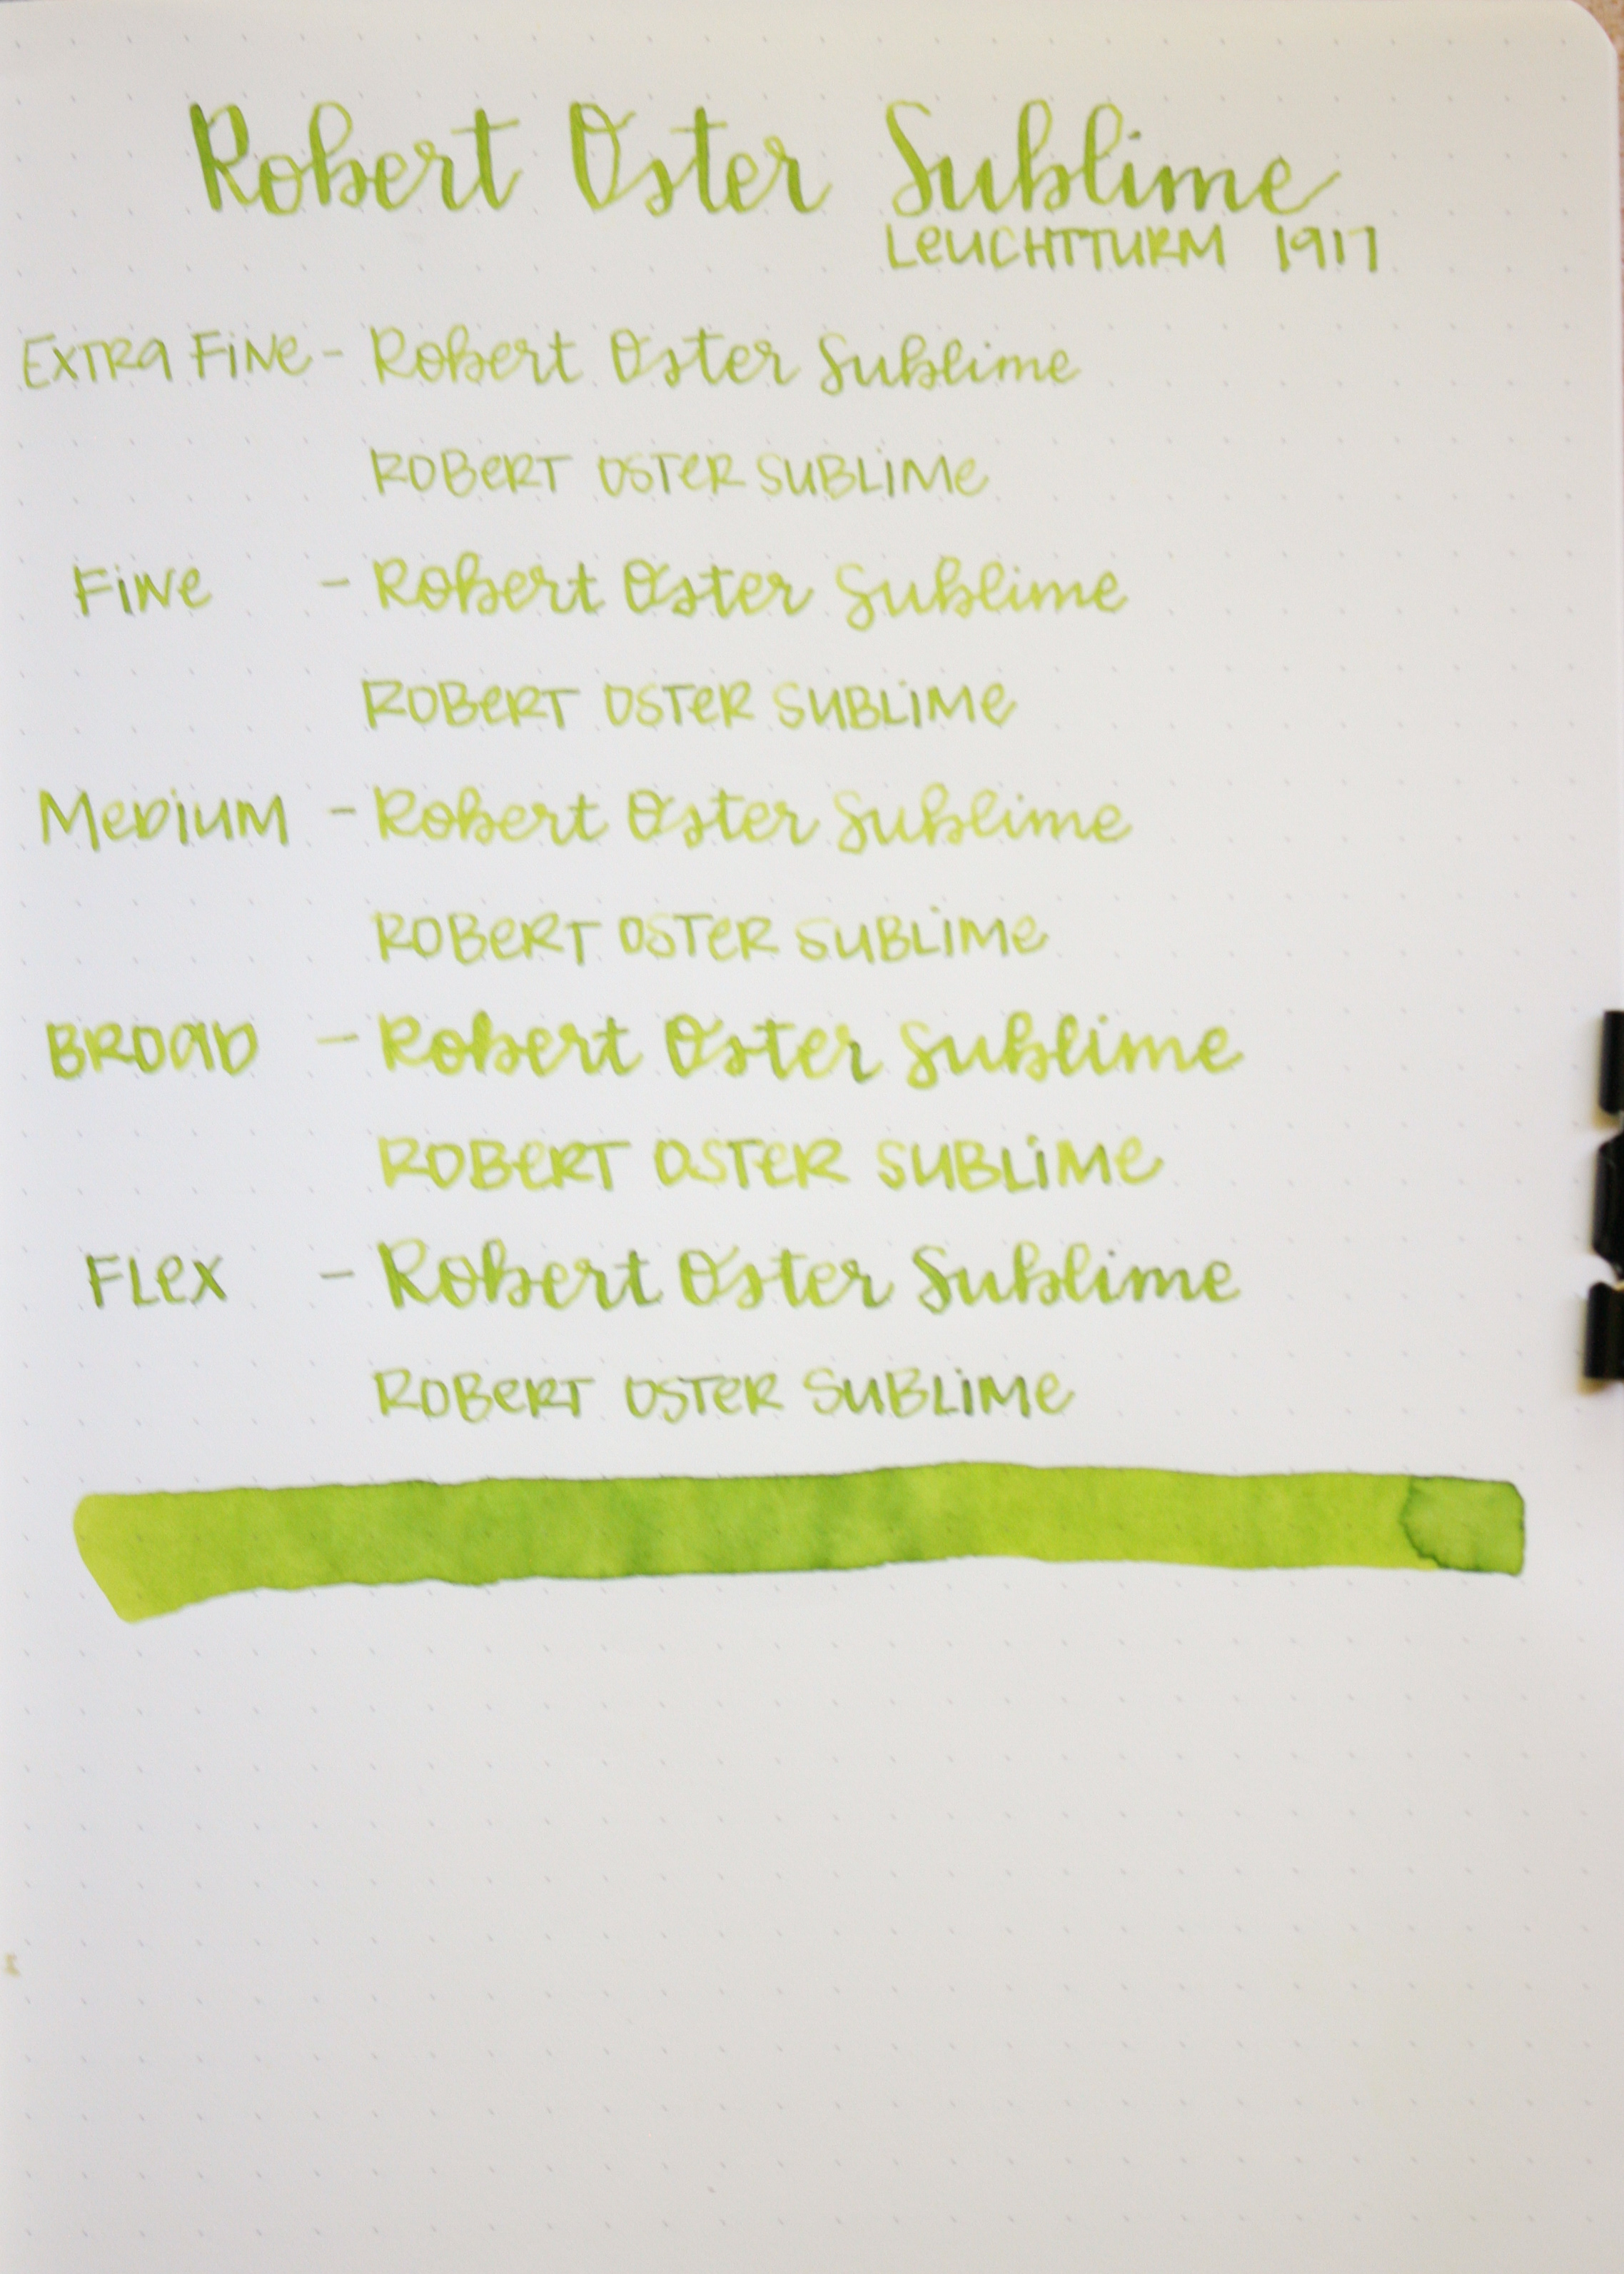 Robert Oster Sublime
LeUCHTTURM 1917
EXTRA FiNe - Robert Oster Sublime
ROBeRT OSTeR SUBLiMe
FiNe - Robert Oster Sublime
ROBeRT OSTeR SUBLiMe
MeDiUM - Robert Oster Sublime
ROBeRT OSTeR SUBLiMe
BROaD - Robert Oster Sublime
ROBeRT OSTeR SUBLiMe
FLeX - Robert Oster Sublime
ROBeRT OSTeR SUBLiMe